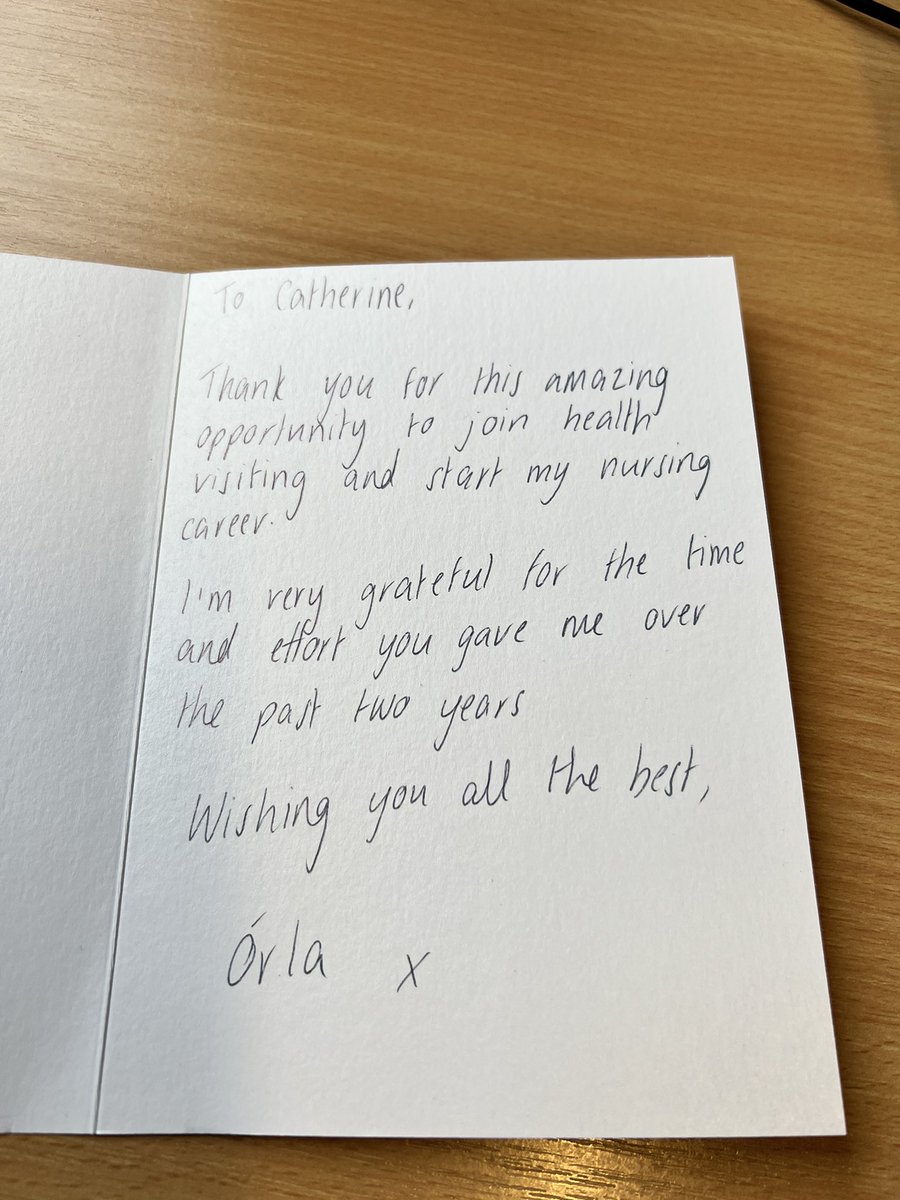 To Catherine,
Thank you for this amazing
opportunity to join health
visiting and start my nursing
career.
I'm very grateful for the time
and effort you gave me over
the past two years
Wishing you all the best,
Órla x